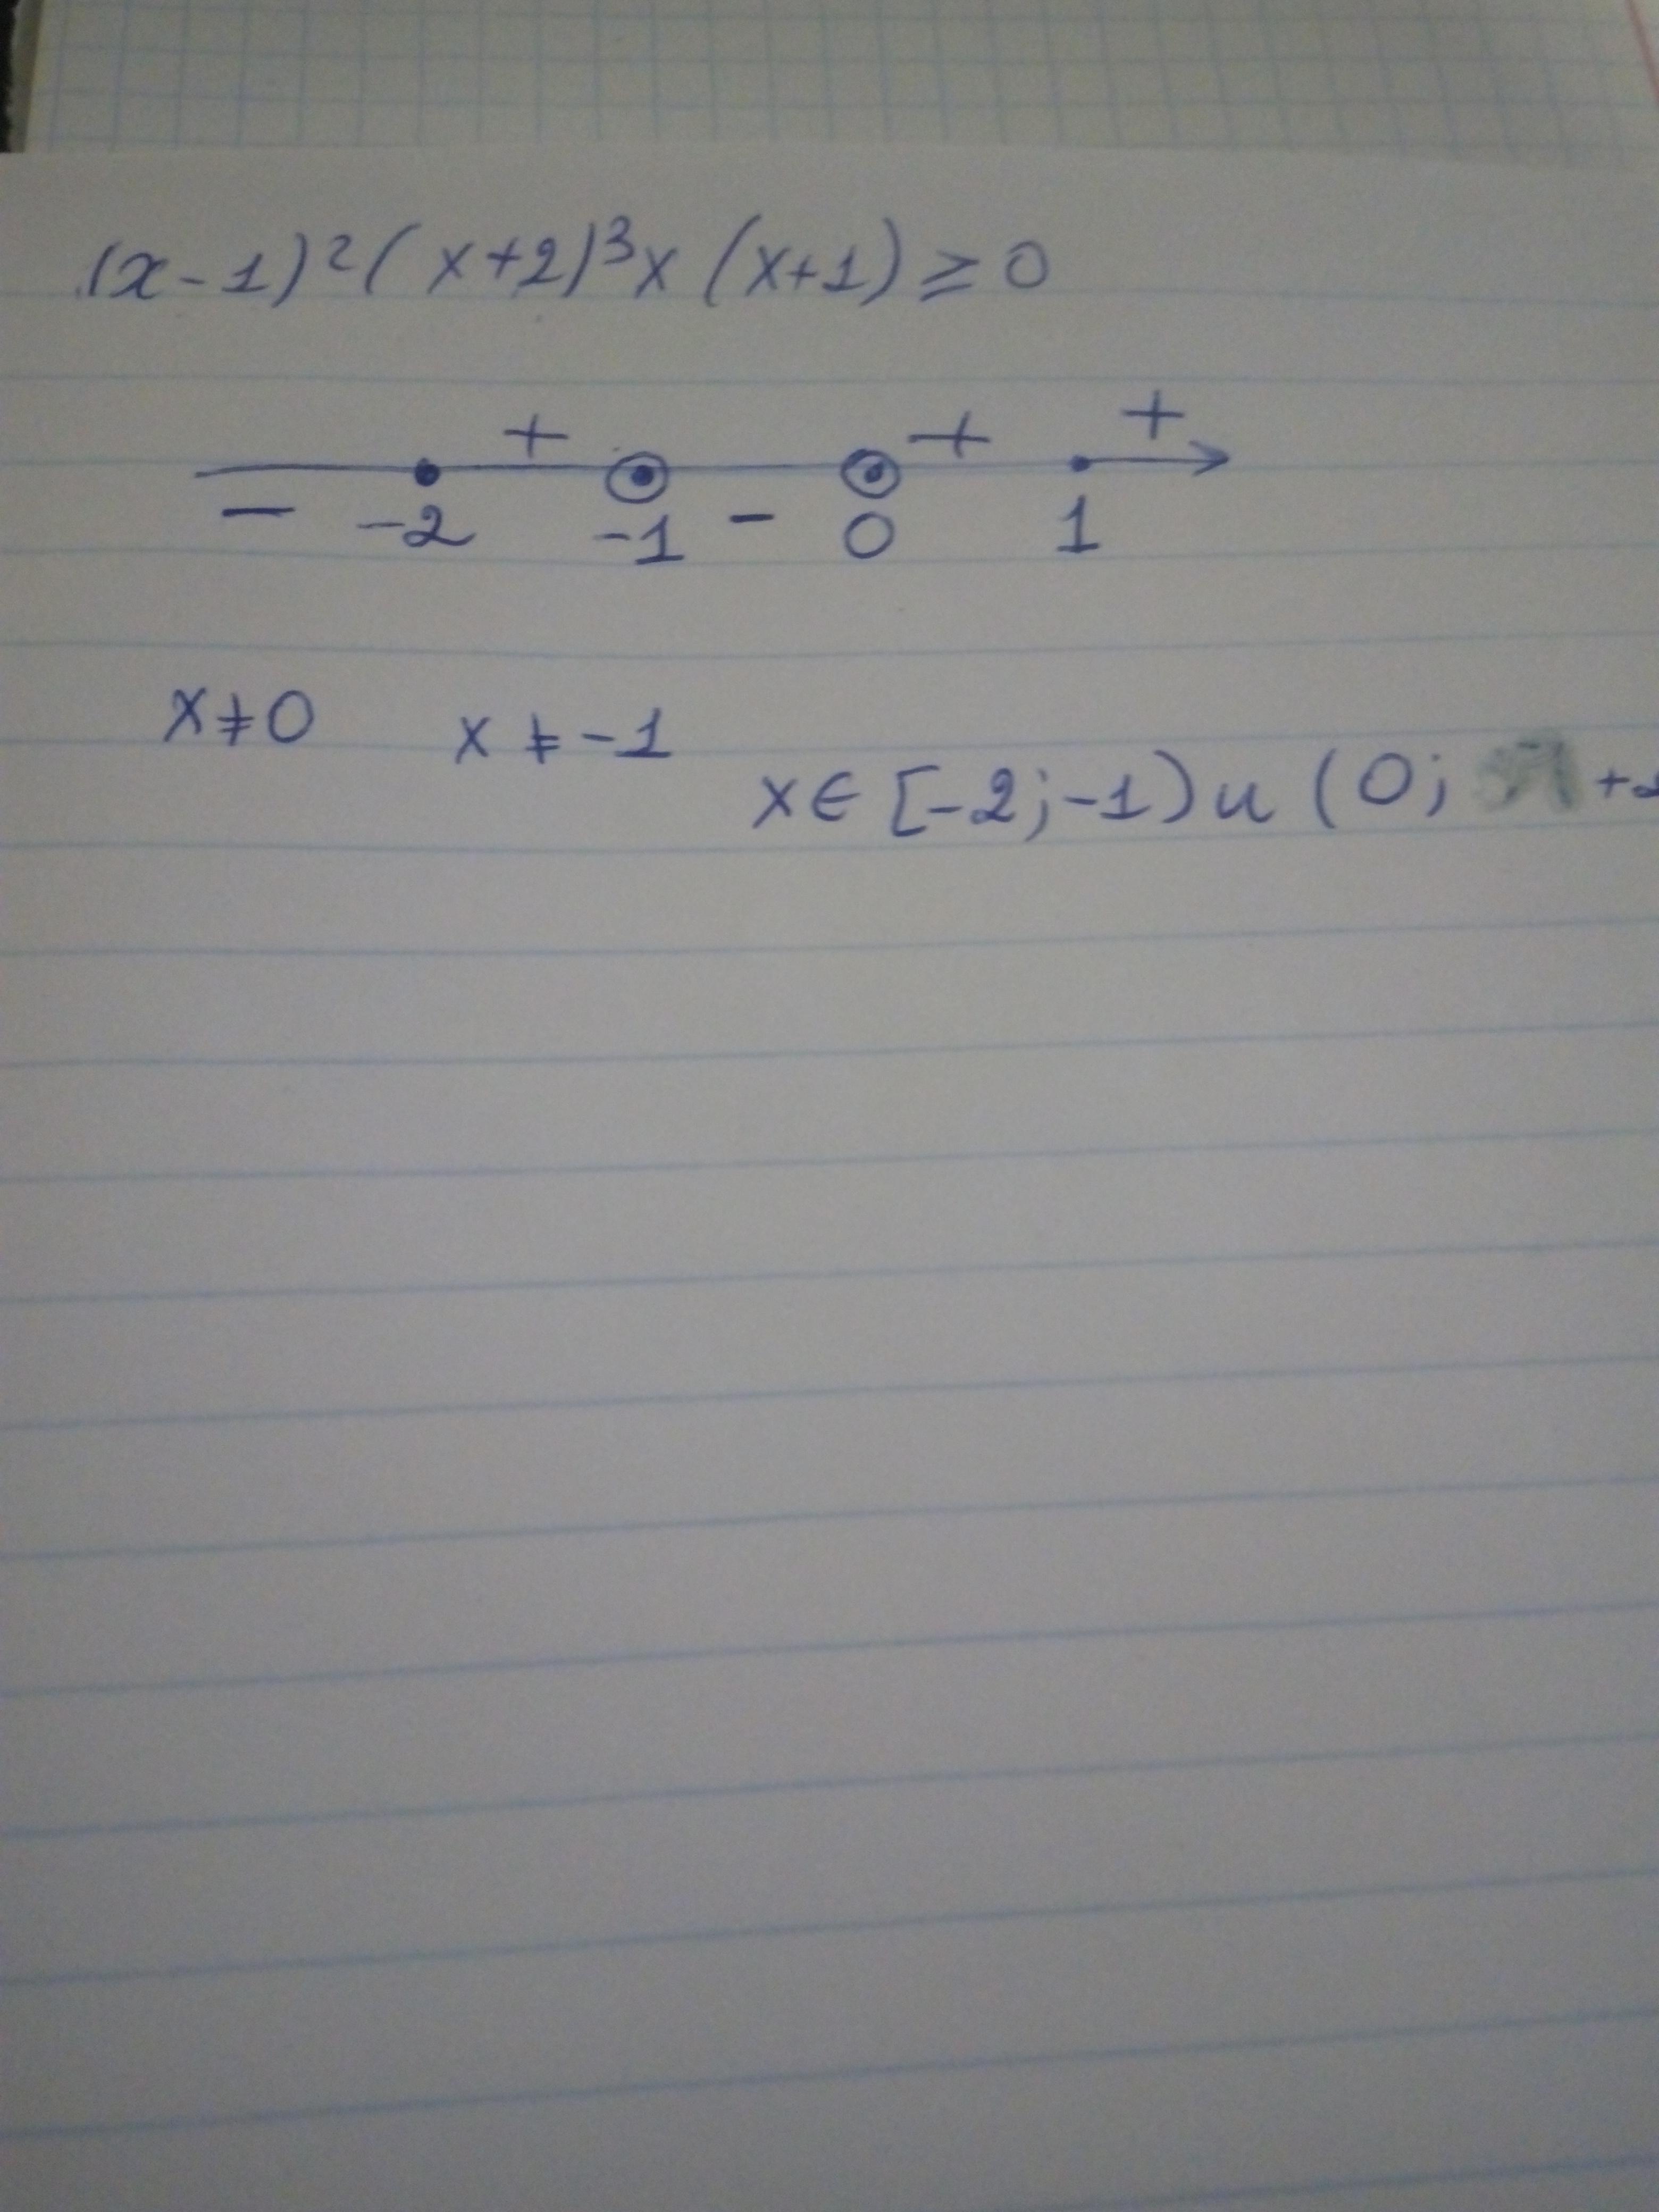 (x-1)²(x+2)³x(x+1)≥0
+ + +
- -2 -1 - 0 1
x≠0 x≠-1
x∈[-2;-1)u(0; +